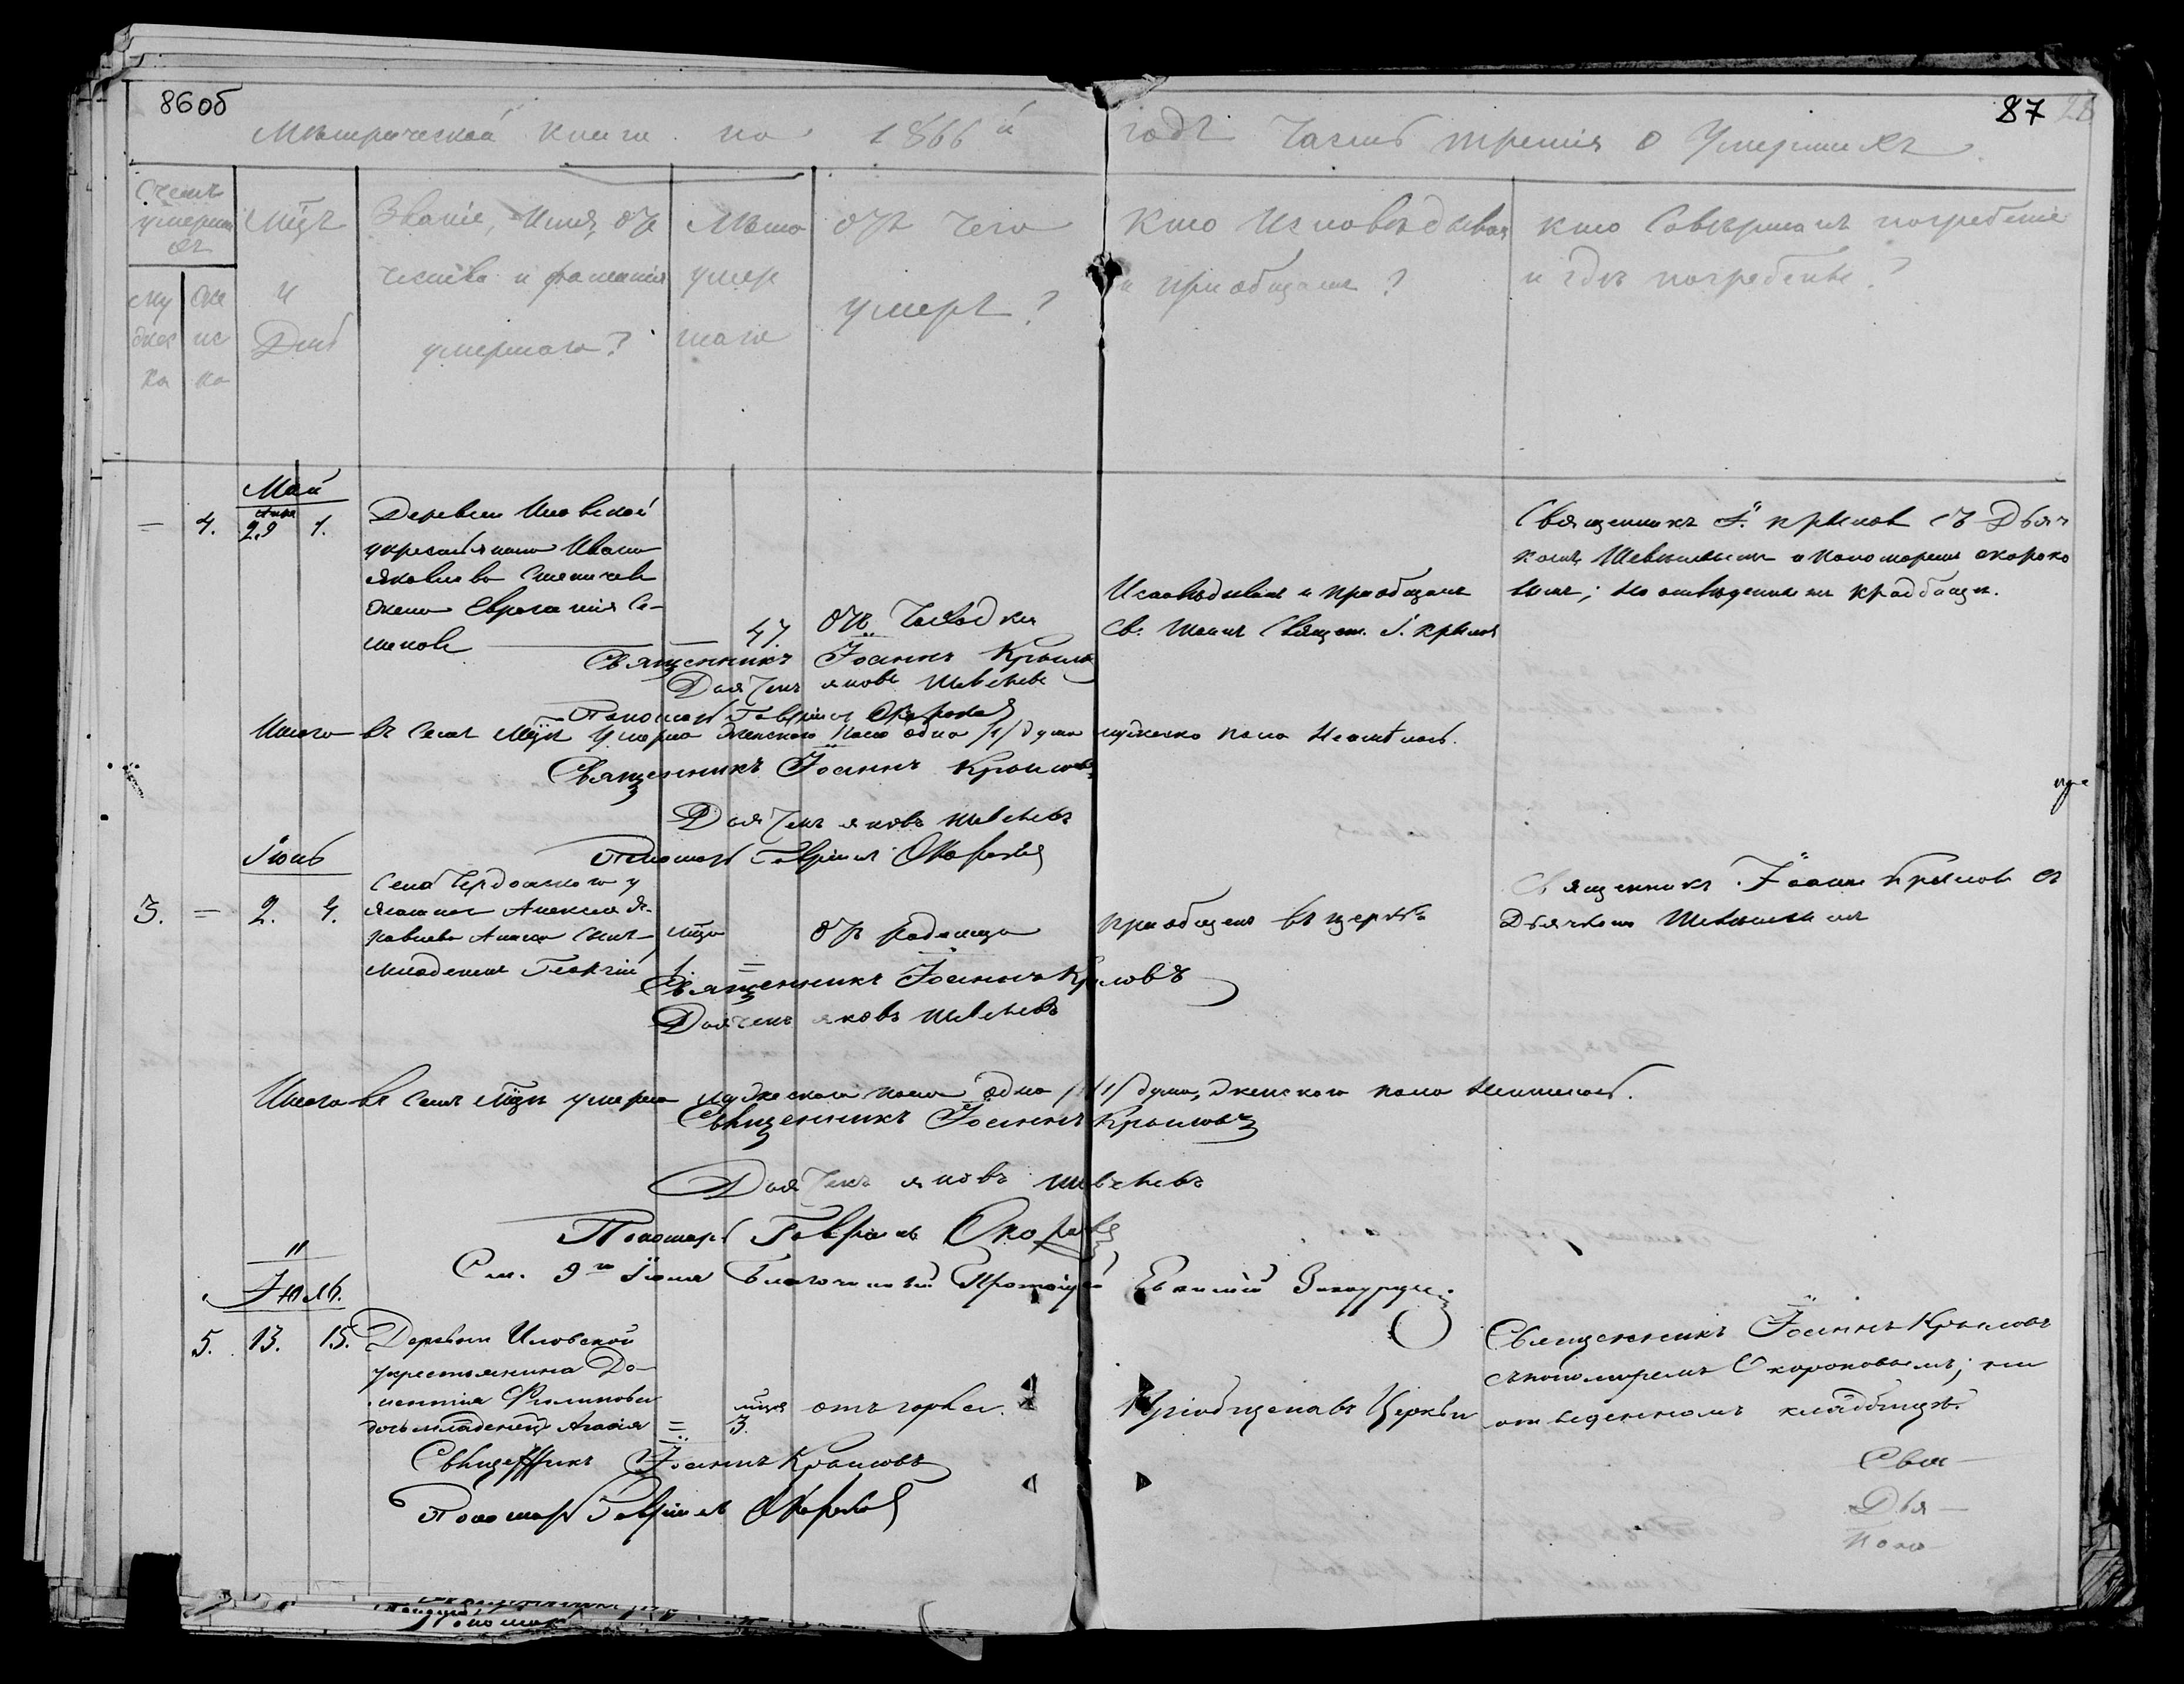 86об
87 28
Метрической книги на 1866й годъ Часть третія о Умершихъ.
Счетъ умерших
муж ска
женс ка
Мцъ и День
Званіе, имя, отчество и фамилія умершаго?
Лѣта умершаго
Отъ чего умеръ?
Кто исповѣдывал и приобщалъ?
Кто совершалъ погребеніе и гдѣ погребенъ?
Май
= 4. 29 1.
Деревни Иловской
у крестьянина Ивана
Яковлева
жена Евгенія Се-
менова
47.
отъ Чахотки
Исповѣдывал и приобщалъ
Св. Таинъ Свящ. І. Крылов
Священникъ І. Крылов съ Дьяч
комъ Шевелевым и Пономарем Скороко
вым; на отведенномъ кладбищѣ.
Священникъ Іоаннъ Крылов
Дьячекъ Яковъ Шевелевъ
Пономарь Гавріилъ Скороков
Итого въ семъ Мцѣ умерло женского пола одна /1/ душа мужеска пола неимѣлось.
Священникъ Іоаннъ Крылов
Дьячекъ Яковъ Шевелевъ
Пономарь Гавріилъ Скороков
Іюнь
3. = 2. 4.
Села Чердоясского у
Ясашнаго Алексея Я-
ковлева сынъ
младенецъ Георгій
мца
1.
отъ родимца
приобщенъ въ церкви
Священникъ Іоаннъ Крылов съ
Дьячкомъ Шевелевым
Священникъ Іоаннъ Крыловъ
Дьячекъ Яковъ Шевелевъ
Итого въ семъ мцѣ умерло мужескаго пола одна /1/ душа, женского пола неимелось.
Священникъ Іоаннъ Крыловъ
Дьячекъ Яковъ Шевелевъ
Пономарь Гавріилъ Скороков
См. 9го Іюля Благочинный Протоіерей
Іюль.
5. 13. 15.
Деревни Иловской
у крестьянина До-
ментія Филипова
дочь младенецъ Агафія
= мця 3.
отъ горла.
Пріобщена въ Церкви
Священникъ Іоаннъ Крыловъ
съ пономаремъ Скороковымъ; на
отведенномъ кладбищѣ.
Священникъ Іоаннъ Крыловъ
Пономарь Гавріилъ Скороков
Свя-
Дья-
Поно-